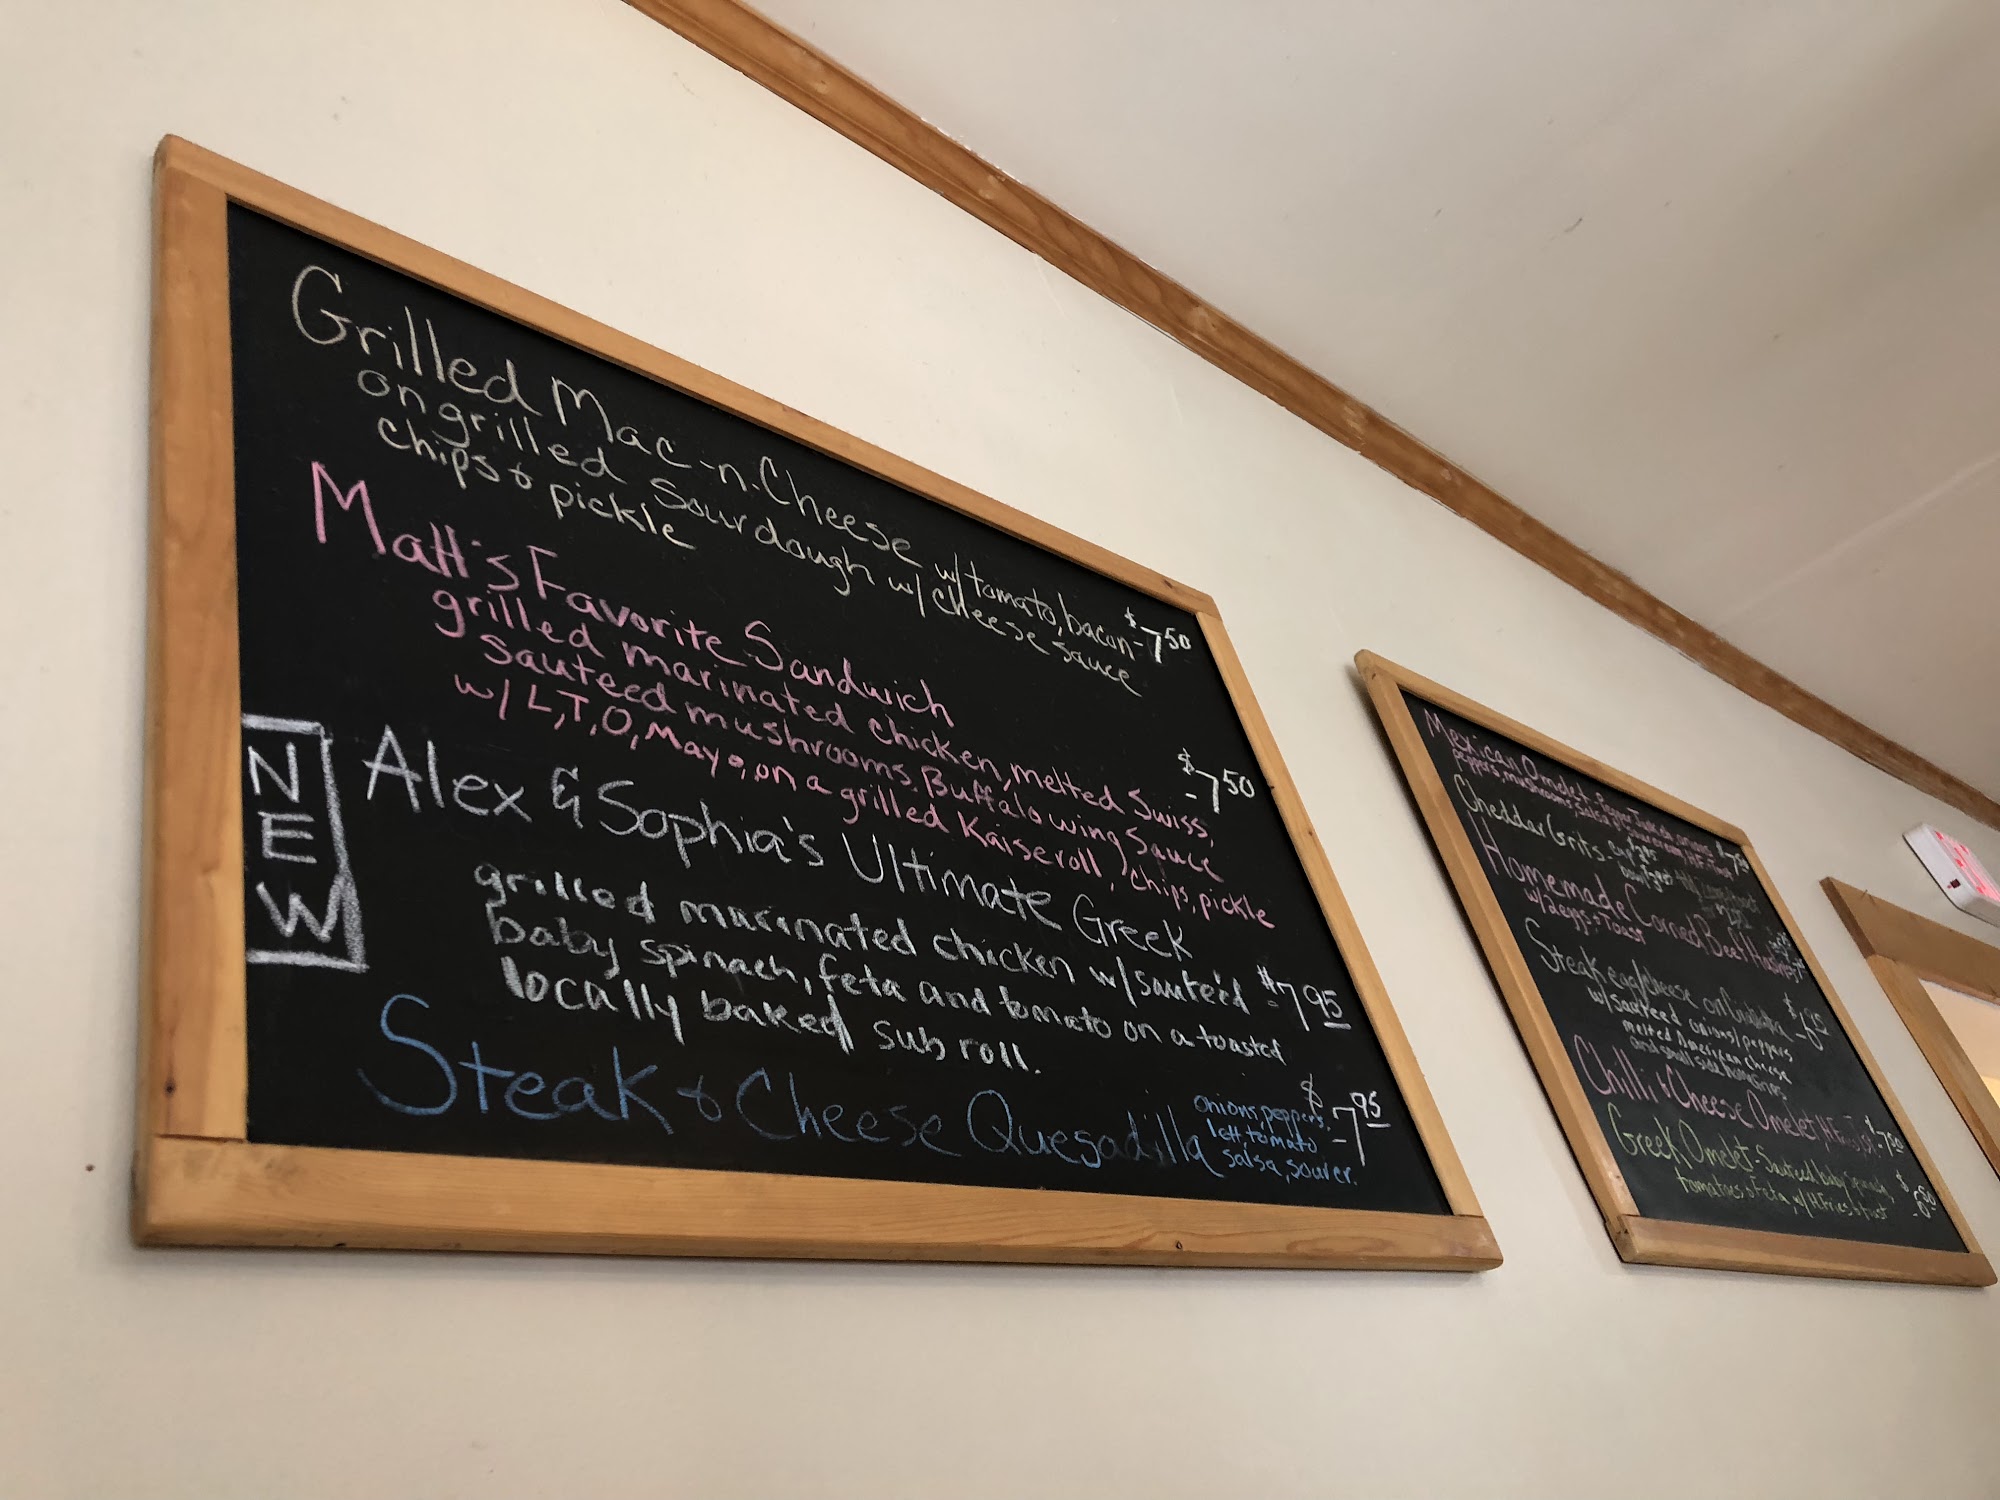 Grilled Mac-n-Cheese w/tomato, bacon - $7.50
on grilled Sourdough w/ cheese sauce
chips & pickle
Matt's Favorite Sandwich
grilled marinated chicken, melted Swiss,
sauteed mushrooms. Buffalo wing sauce - $7.50
w/ L, T, O, Mayo, on a grilled Kaiseroll, chips, pickle
NEW
Alex & Sophia's Ultimate Greek
grilled marinated chicken w/sauteéd - $7.95
baby spinach, feta and tomato on a toasted
locally baked sub roll.
Steak & Cheese Quesadilla
onions, peppers,
lett, tomato - $7.95
salsa, sourcr.
Mexican Omelet
peppers, mushrooms, salsa
Cheddar Grits -
Homemade Corned Beef Hash
w/2eggs & Toast
Steak egg/cheese on
w/sauteed onions/peppers
melted American cheese
and small side homefries
Chilli & Cheese Omelet, - $7.50
Greek Omelet - Sauteed baby spinach,
tomatoes & Feta, w/ H.Fries & toast - $6.50